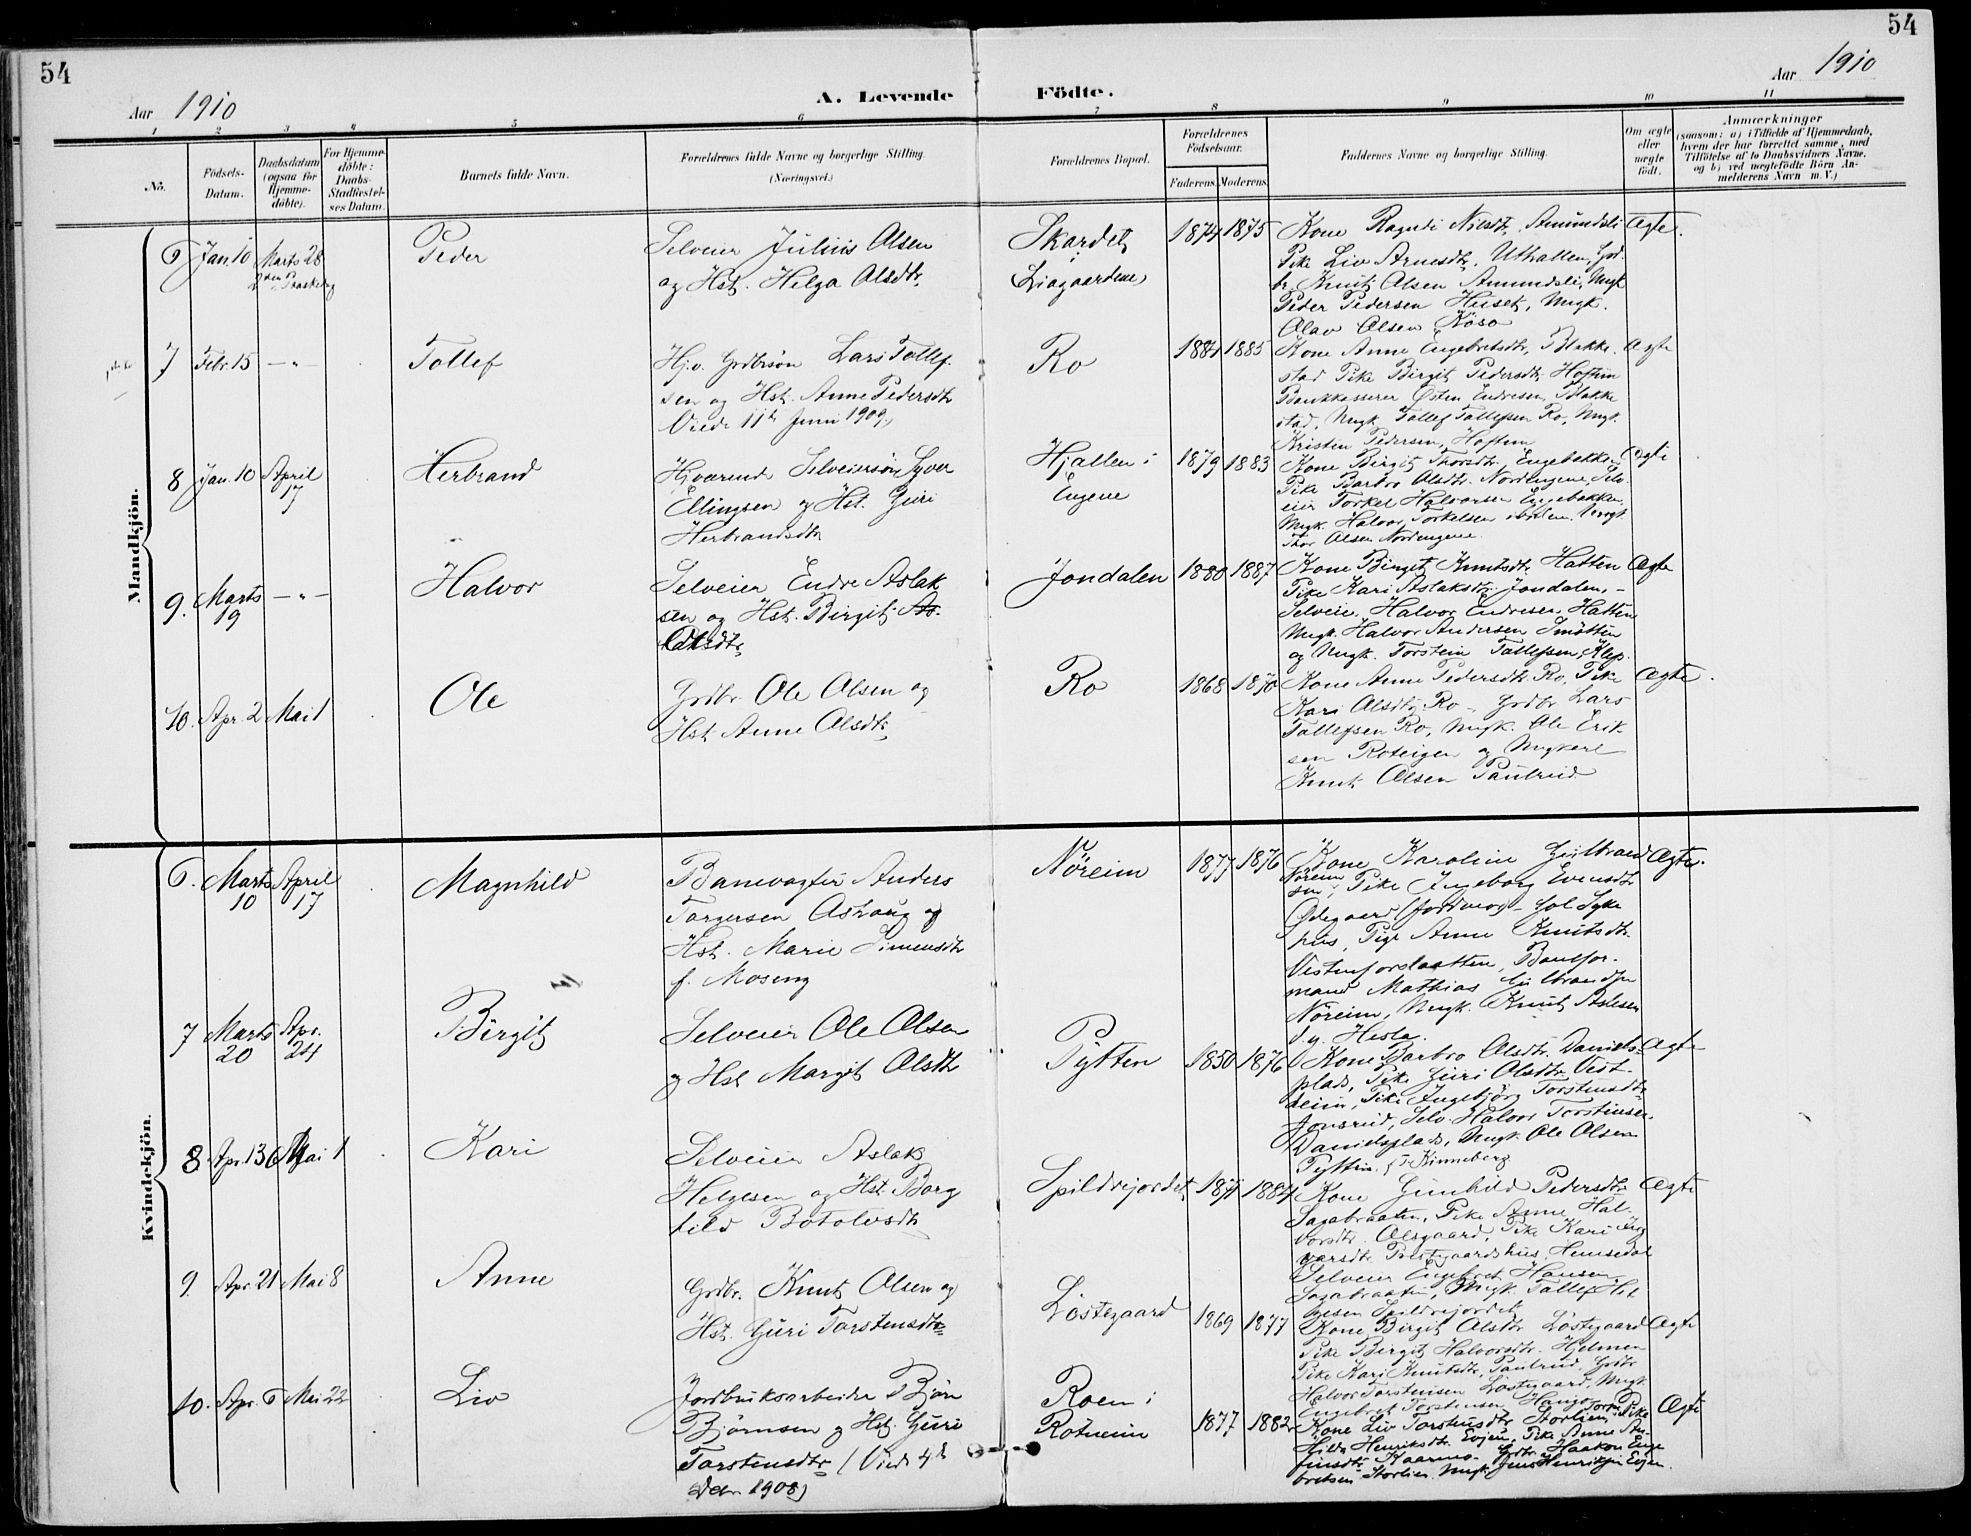 54
54
Aar 1910
A. Levende Födte.
Aar 1910
1 2 3 4 5 6 7 8 9 10 11
No.
Födsels-
Datum.
Daabsdatum
(ogsaa for
Hjemme-
döbte).
For Hjemme-
döbte:
Daabs-
Stadfæstel-
ses Datum.
Barnets fulde Navn.
Forældrenes fulde Navne og borgerlige Stilling.
(Næringsvei.)
Forældrenes Bopæl.
Forældrenes
Födselsaar.
Faderens. Moderens.
Faddernes Navne og borgerlige Stilling.
Om ægte
eller
uægte
födt.
Anmærkninger
(saasom: a) i Tilfælde af Hjemmedaab,
hvem der har forrettet samme, med
Tilföielse af to Daabsvidners Navne.
og b) ved uægtefödte Börn An-
melderens Navn m. V.)
Mandkjön.
6 Jan. 10 Marts 28
2den Paaskedag
Peder
Selveier Julius Olsen
og Hst. Helga Olsdtr.
Skardet,
Liagaardene
1874 1875
Kone Ragndi Nilsdtr. Amundsli
Pike Liv Arnesdtr. Uthallen, Grd-
br. Knut Olsen Amundsli, Ungk
Peder Pedersen Huset, Ungk.
Olav Olsen
Ægte.
7 Febr. 15 — " —
Tollef
Hjv. Grdbrsön Lars Tollef-
sen og Hst. Anne Pedersdtr
Viede 11te Juni 1909.
Ro
1884 1885
Kone Anne Engebretsdtr. Blakke-
stad Pike Birgit Pedersdtr. Hoftun
Bankkasserer Østen Endresen Blakke
stad, Ungk. Tollef Tollefsen Ro, Ungk.
Kristen Pedersen, Hoftun
Ægte
8 Jan. 10 April
17
Herbrand
Hjværende Selveiersön Syver
Ellingsen og Hst. Guri
Herbrandsdtr
Hjallen i
Engene
1879 1883
Kone Birgit Thorsdtr. Engebakken
Pike Barbro Olsdtr. Nordengene, Selv-
eier Torkel Halvorsen Engebakken,
Ungk. Halvor Torkelsen ibidem. Ungk.
Thor Olsen Nordengene.
Ægte
9. Marts — " —
19
Halvor
Selveier Endre Aslak
sen og Hst. Birgit As-
Olsdtr.
Jondalen
1880 1887
Kone Birgit Knutsdtr. Hatten
Pike Kari Aslaksdtr. Jondalen, -
Selveier Halvor Endresen, Hatten
Ungk. Halvor Andersen
og Ungk. Torstein Tollefsen, Klep.
Ægte
10. Apr. 2 Mai 1
Ole
Grdbr. Ole Olsen og
Hst. Anne Olsdtr.
Ro
1868 1870
Kone Anne Pedersdtr. Ro, Pike
Kari Olsdtr. Ro - Grdbr Lars
Tollefsen Ro, Ungk. Ole Erik-
sen Roteigen og Ungkarl
Knut Olsen Paulrud
Ægte.
Kvindekjön.
6. Marts April
10 17
Magnhild
Banevogter Anders
Torgersen Ashaug og
Hst. Marie Simensdtr
f. Moseng
Nöreim
1877 1876
Kone Karoline Gulbrand
sen, Nöreim Pike Ingeborg Evensdtr
Ødegaard (Jordmor) - Gol Syke
hus, Pige Anne Knutsdtr.
Vestenfor , Banefor-
mand Mathias Gulbrandsen
Nöreim, Ungk. Knut Aslesen
d.y. Hesla.
Ægte.
7 Marts Apr.
20 24
Birgit
Selveier Ole Olsen
og Hst Margit Olsdtr
Pytten
1850 1876
Kone Barbro Olsdtr. Daniels-
plads, Pike Guri Olsdtr. Vest-
deim, Pike Ingebjörg Torstensdtr
Jonsrud, Selv. Halvor Torstensen,
Danielsplads, Ungk. Ole Olsen
Pytten. f. Kinneberg
Ægte
8 Apr. 13 Mai 1
Kari
Selveier Aslak
Helgesen og Hst. Borg
hild Botolvsdtr
Spildrejordet,
1871 1884
Kone Gunhild Pedersdtr.
Sagabraaten, Pike Anne Hal-
vorsdtr. Olsgaard, Pike Kari Ing
varsdtr. Prestgaardshus, Hemsedal
Selveier Engebret Hansen
Sagabraaten, Ungk. Tollef Hel
gesen Spildrejordet
Ægte
9. Apr. 21 Mai 8
Anne
Grdbr. Knut Olsen og
Hst. Guri Torstensdtr.
Löstegaard
1869 1877
Kone Birgit Olsdtr. Löstegaard
Pike Birgit Halvorsdtr. Hjelmen
Pike Kari Knutsdtr. Paulrud, Grdbr
Halvor Torstensen Löstegaard, Ungk
Engebret Torstensen
Ægte
10. Apr. 6 Mai 22
Liv
Jordbruksarbeider Bjön
Bjørnsen og Hst. Guri
Torstensdtr. (Viede 4de
Decbr. 1908)
Roen i
Rotneim
1877 1882
Kone Liv Torstensdtr. Storlien, Pike
Hilda Henriksdtr. Evjen, Pike Anne
finsdtr. Kaarmo. Grdbr. Haakon Enge
bretsen Storlien. Ungk. Jens Henriksen Evjen.
Ægte